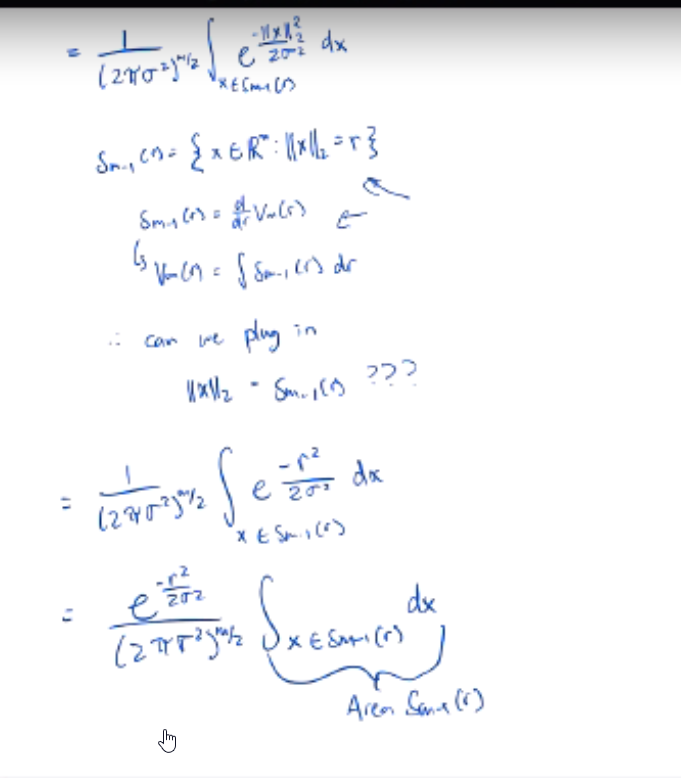 = 1/(2πσ²)^{m/2} ∫_{x∈S_{m-1}(r)} e^{-||x||₂²/2σ²} dx
S_{m-1}(r) = {x ∈ ℝ^m : ||x||₂ = r}
S_{m-1}(r) = d/dr V_m(r) ←
↳ V_m(r) = ∫ S_{m-1}(r) dr
∴ can we plug in
||x||₂ = S_{m-1}(r) ???
= 1/(2πσ²)^{m/2} ∫_{x∈S_{m-1}(r)} e^{-r²/2σ²} dx
= e^{-r²/2σ²}/(2πσ²)^{m/2} ∫_{x∈S_{m-1}(r)} dx
Area S_{m-1}(r)